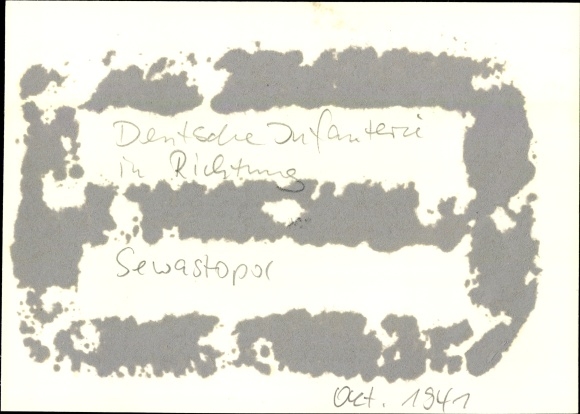 Deutsche Infanterie
in Richtung
Sewastopol
Oct. 1941